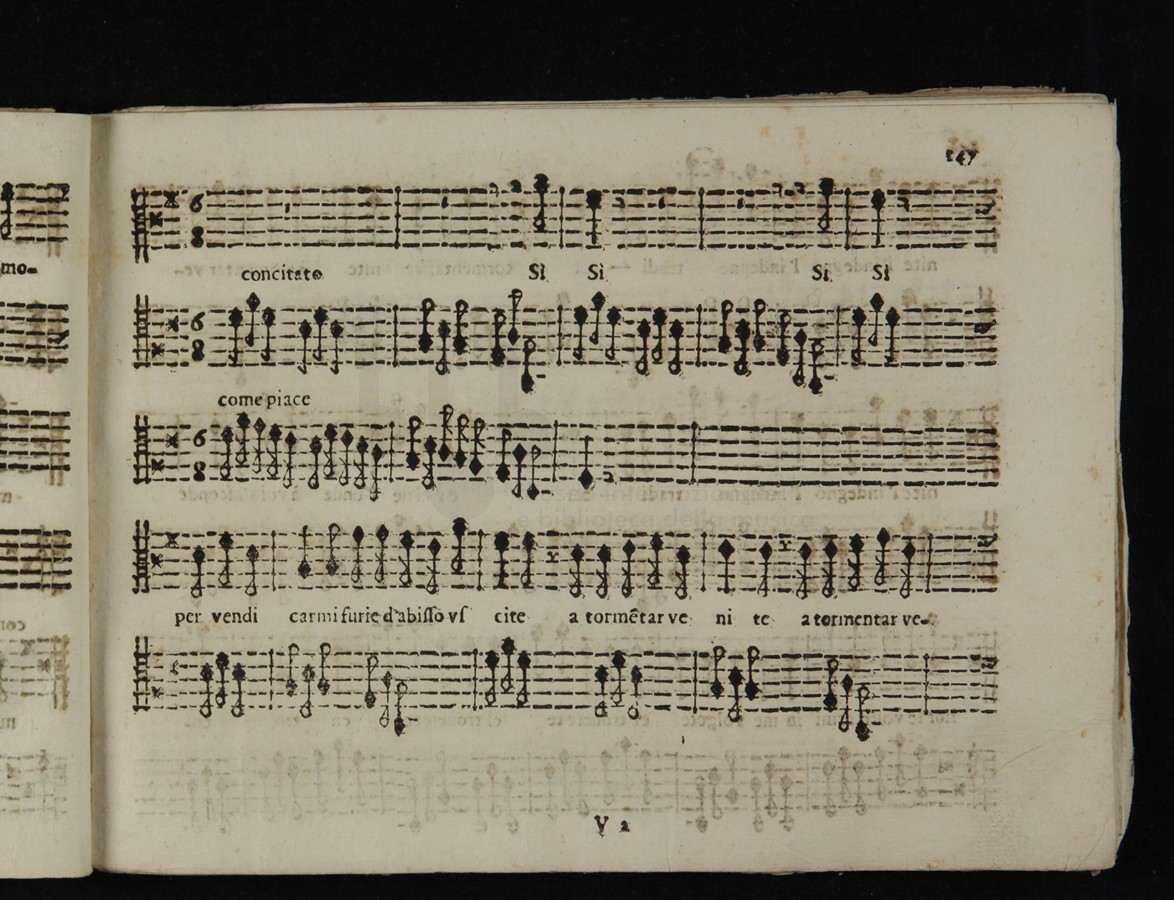 147
mo-
6 8
concitato Sì Sì Sì Sì
6 8
come piace
6 8
per vendi carmi furie d'abisso vſ cite a tormẽtar ve ni te a tormentar ve-
V 2